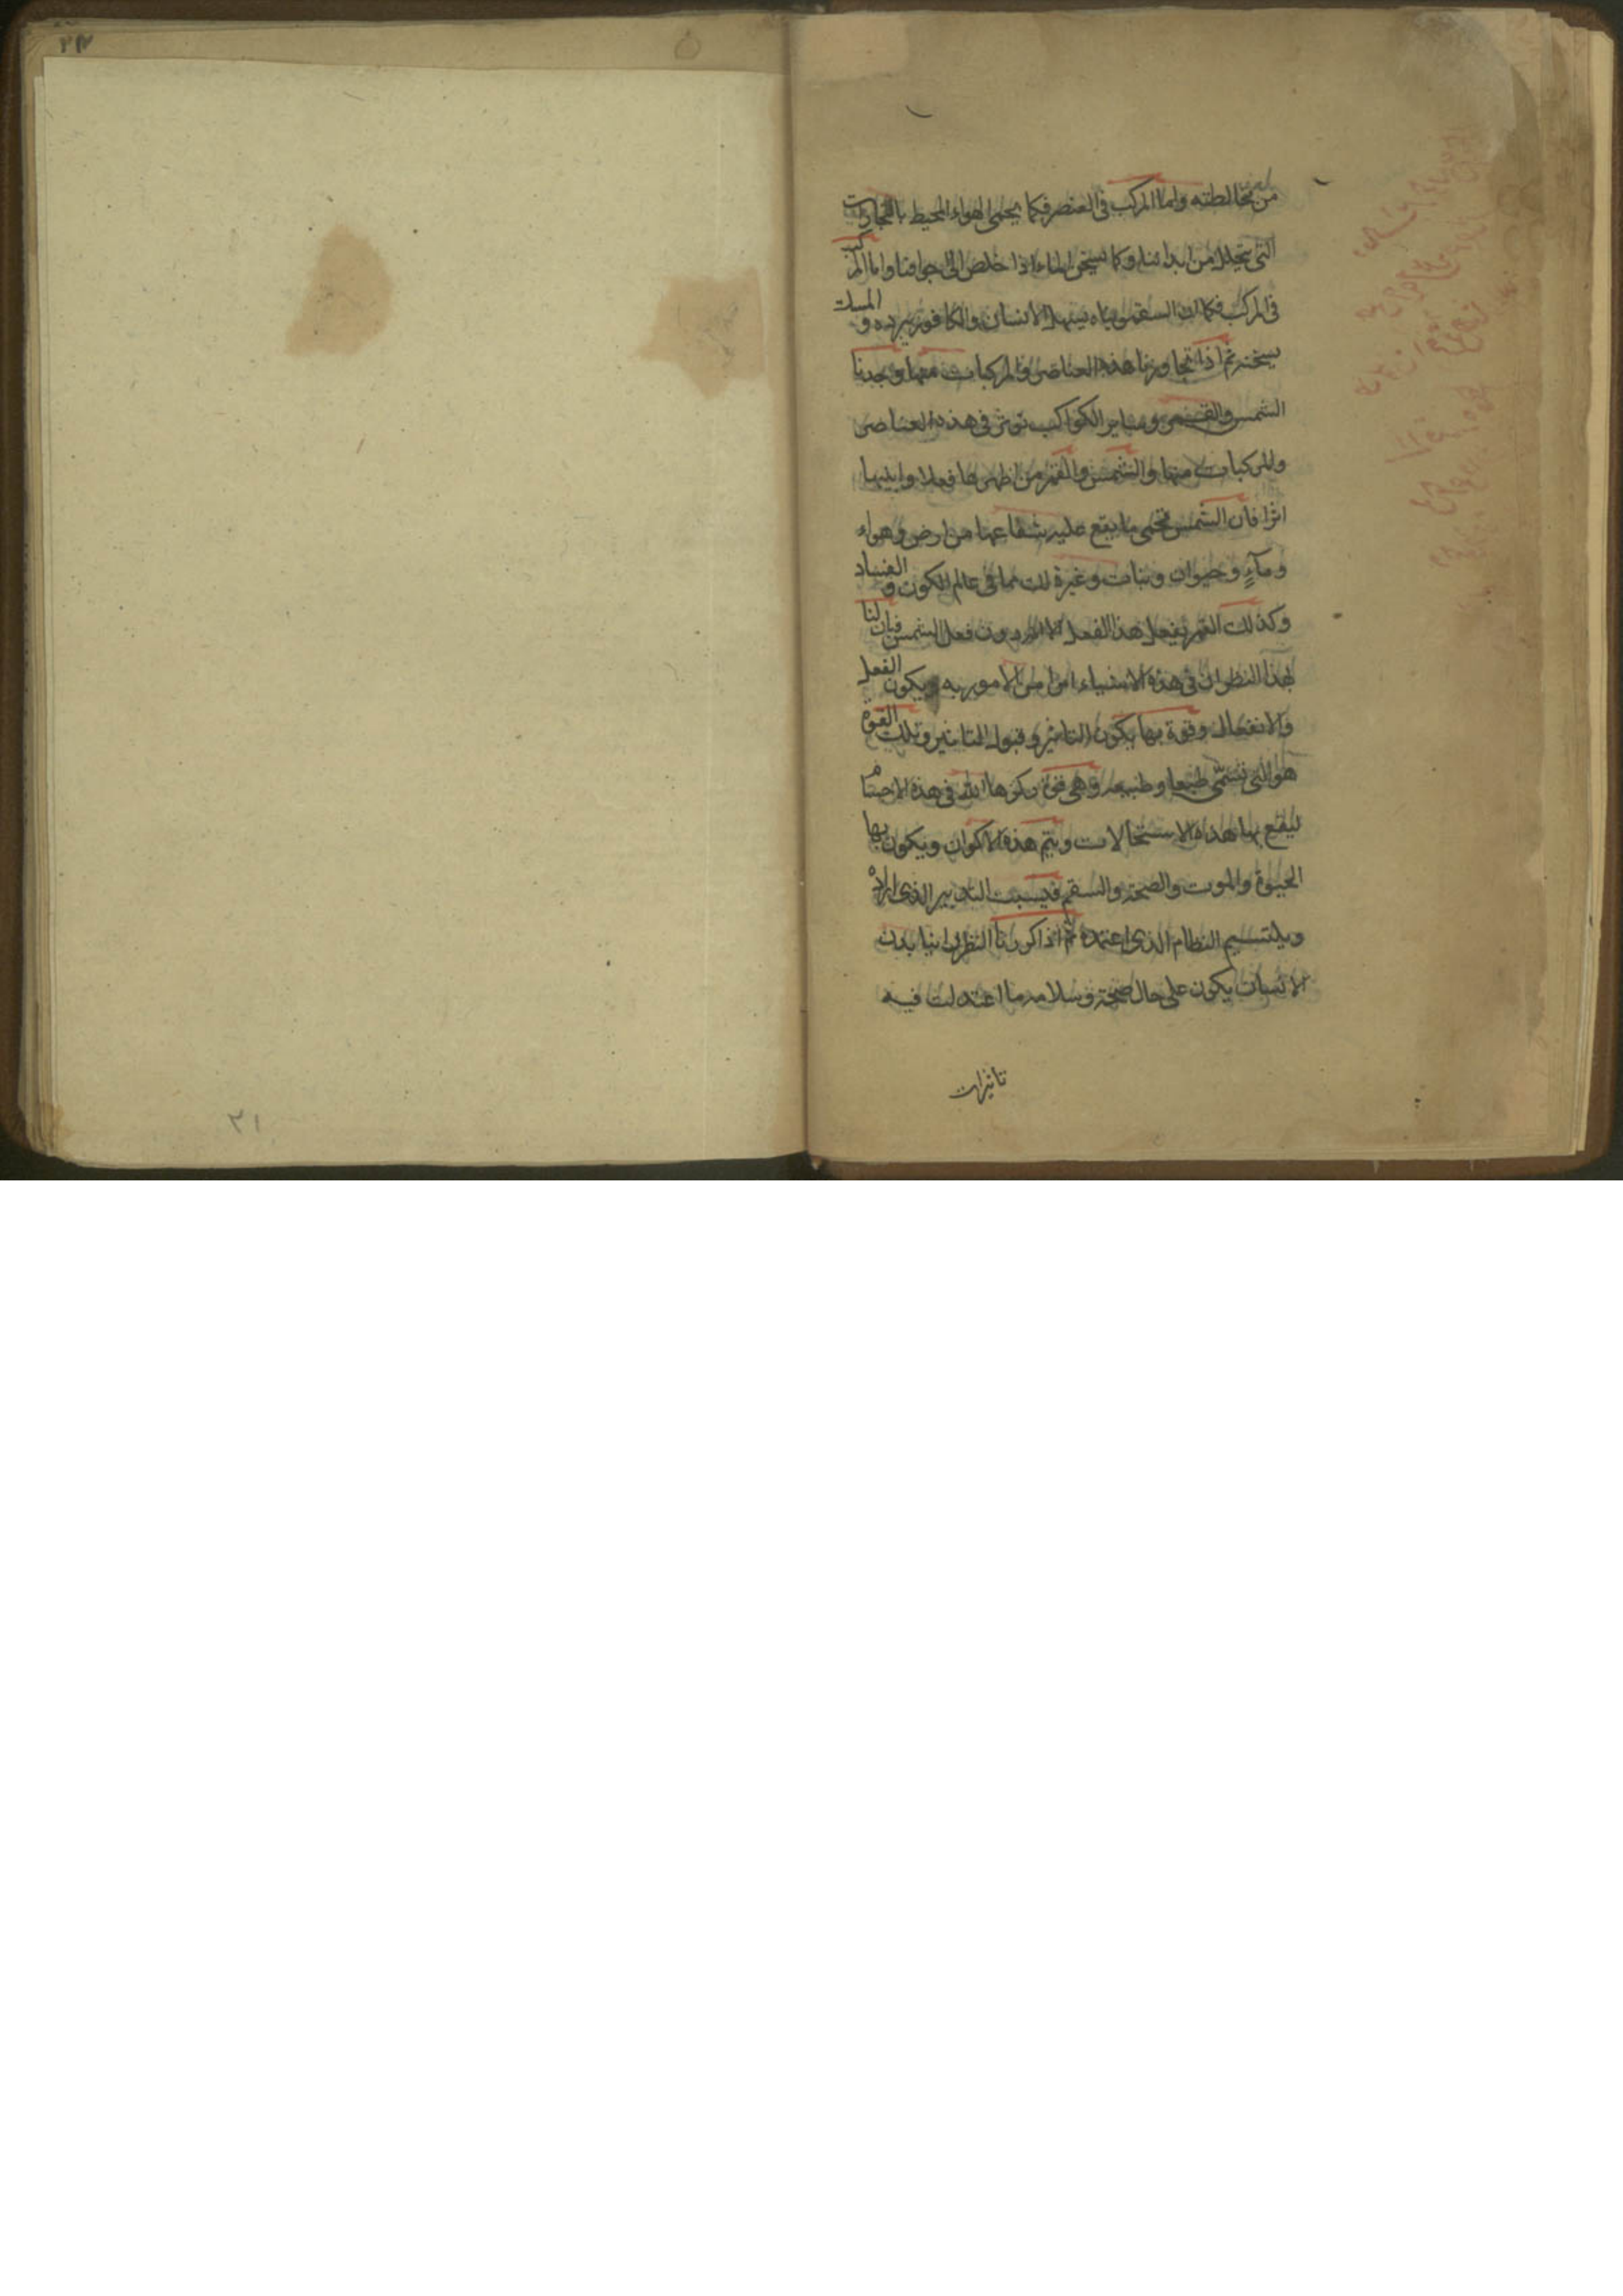 من مخالطته واما المركب فى العنصر فكما يحمى الهواء المحيط بالبخارات
التى تتحلل من ابداننا وكما يسخن الماء اذا خلص الى اجوافنا واما المركب
فى المركب فكما ان السقمونيا يسهل الانسان والكافور يبرده و المسك
يسخنه ثم اذا تجاوزنا هذه العناصر والمركبات منها وجدنا
الشمس والقمر وساير الكواكب توثر فى هذه العناصر
والمركبات منها والشمس والقمر من اظهرها فعلا وابينها
اثرا فان الشمس تحمى ما يقع عليه شعاعها من ارض وهواء
ومآءٍ وحيوان ونبات وغير ذلك مما فى عالم الكون و الفساد
وكذلك القمر يفعل هذا الفعل الا انه دون فعل الشمس فبان لنا
بهذا النظر ان فى هذه الاشياء امرا من الامور به ويكون الفعل
والانفعال وقوة بها يكون التاثير وقبول التاثير وتلك القوة
هو التى تسمّى طبعا وطبيعه وهى قوة ركزها الله فى هذه الاجسام
ليقع بها هذه الاستحالات ويتم هذه الاكوان ويكون بها
الحيوة والموت والصحة والسقم التدبير الذى اراده
النظام الذى اعتمده ثم اذا كررنا النظر راينا بدن
الانسان يكون على حال صحة وسلامه ما اعتدلت فيه
تاثيرات
٢١